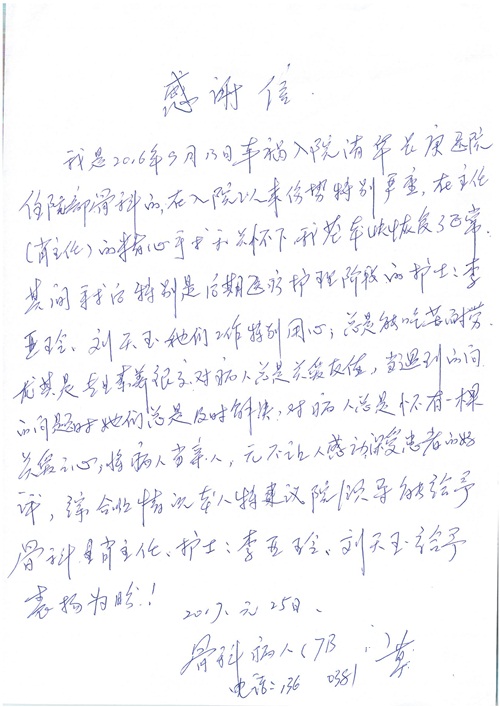 感谢信
我是2016年9月13日车祸入院清华长庚医院
住院部骨科的,在入院以来伤势特别严重,在主任
(肖主任)的精心手术和关怀下,我基本快恢复了正常
其间手术后特别是后期医疗护理阶段的护士:李
亚玲、刘天玉她们工作特别用心,总是能吃苦耐劳
尤其是专业素养很高对病人总是关爱友值,当遇到的问
的问题时她们总是及时解决,对病人总是怀有一棵
关爱之心,将病人当亲人,无不让人感动深受患者的好
评,综合以情况本人特建议院领导能给予
骨科肖主任、护士:李亚玲、刘天玉给予
表扬为盼!
2017.元25日、
骨科病人(7B )草
电话:136 0381